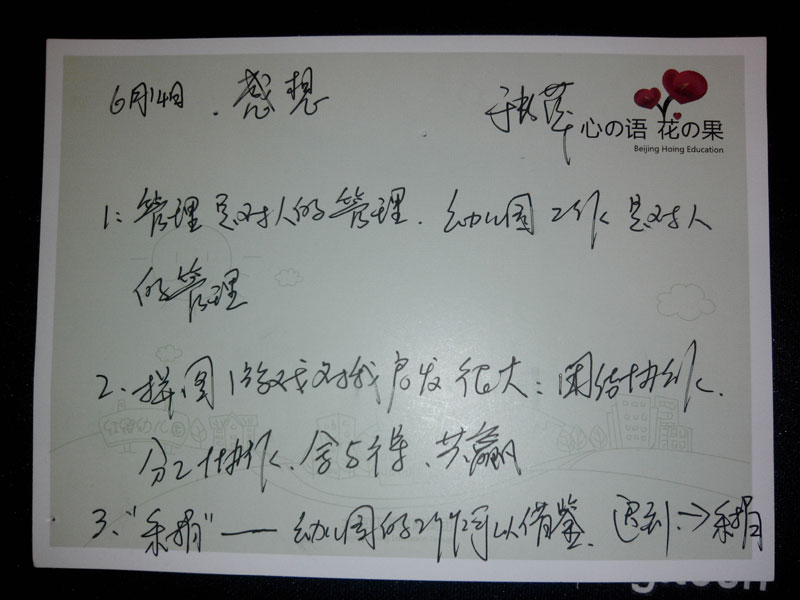 6月14日. 感想
心の语 花の果
Beijing Hoing Education
1: 管理是对人的管理. 幼儿园工作是对人
的管理
2. 拼图游戏对我启发很大: 团结协作.
分工协作. 舍与得. 共赢
3. " " —— 幼儿园的工作可以借鉴. 遇到 →